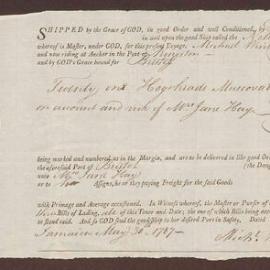 SHIPPED by the Grace of GOD, in good Order and well Conditioned, by
in and upon the good Ship called the
whereof is Master, under GOD, for this present Voyage, Michael
and now riding at Anchor in the Port of Kingston
and by GOD's Grace bound for Bristol
Twenty one Hogsheads Muscovado
on account and risk of Mrs Jane Hay
being marked and numbered as in the Margin, and are to be delivered in the like good Order
the aforesaid Port of Bristol (the
unto Mrs Jane Hay
or to her Assigns, he or they paying Freight for the said Goods
with Primage and Average accustomed. In Witness whereof, the Master or Purser of
Bills of Lading, all of this Tenor and Date; the one of which Bills being
to stand void. And so GOD send the good Ship to her desired Port in Safety. Dated
Jamaica May 30 1787